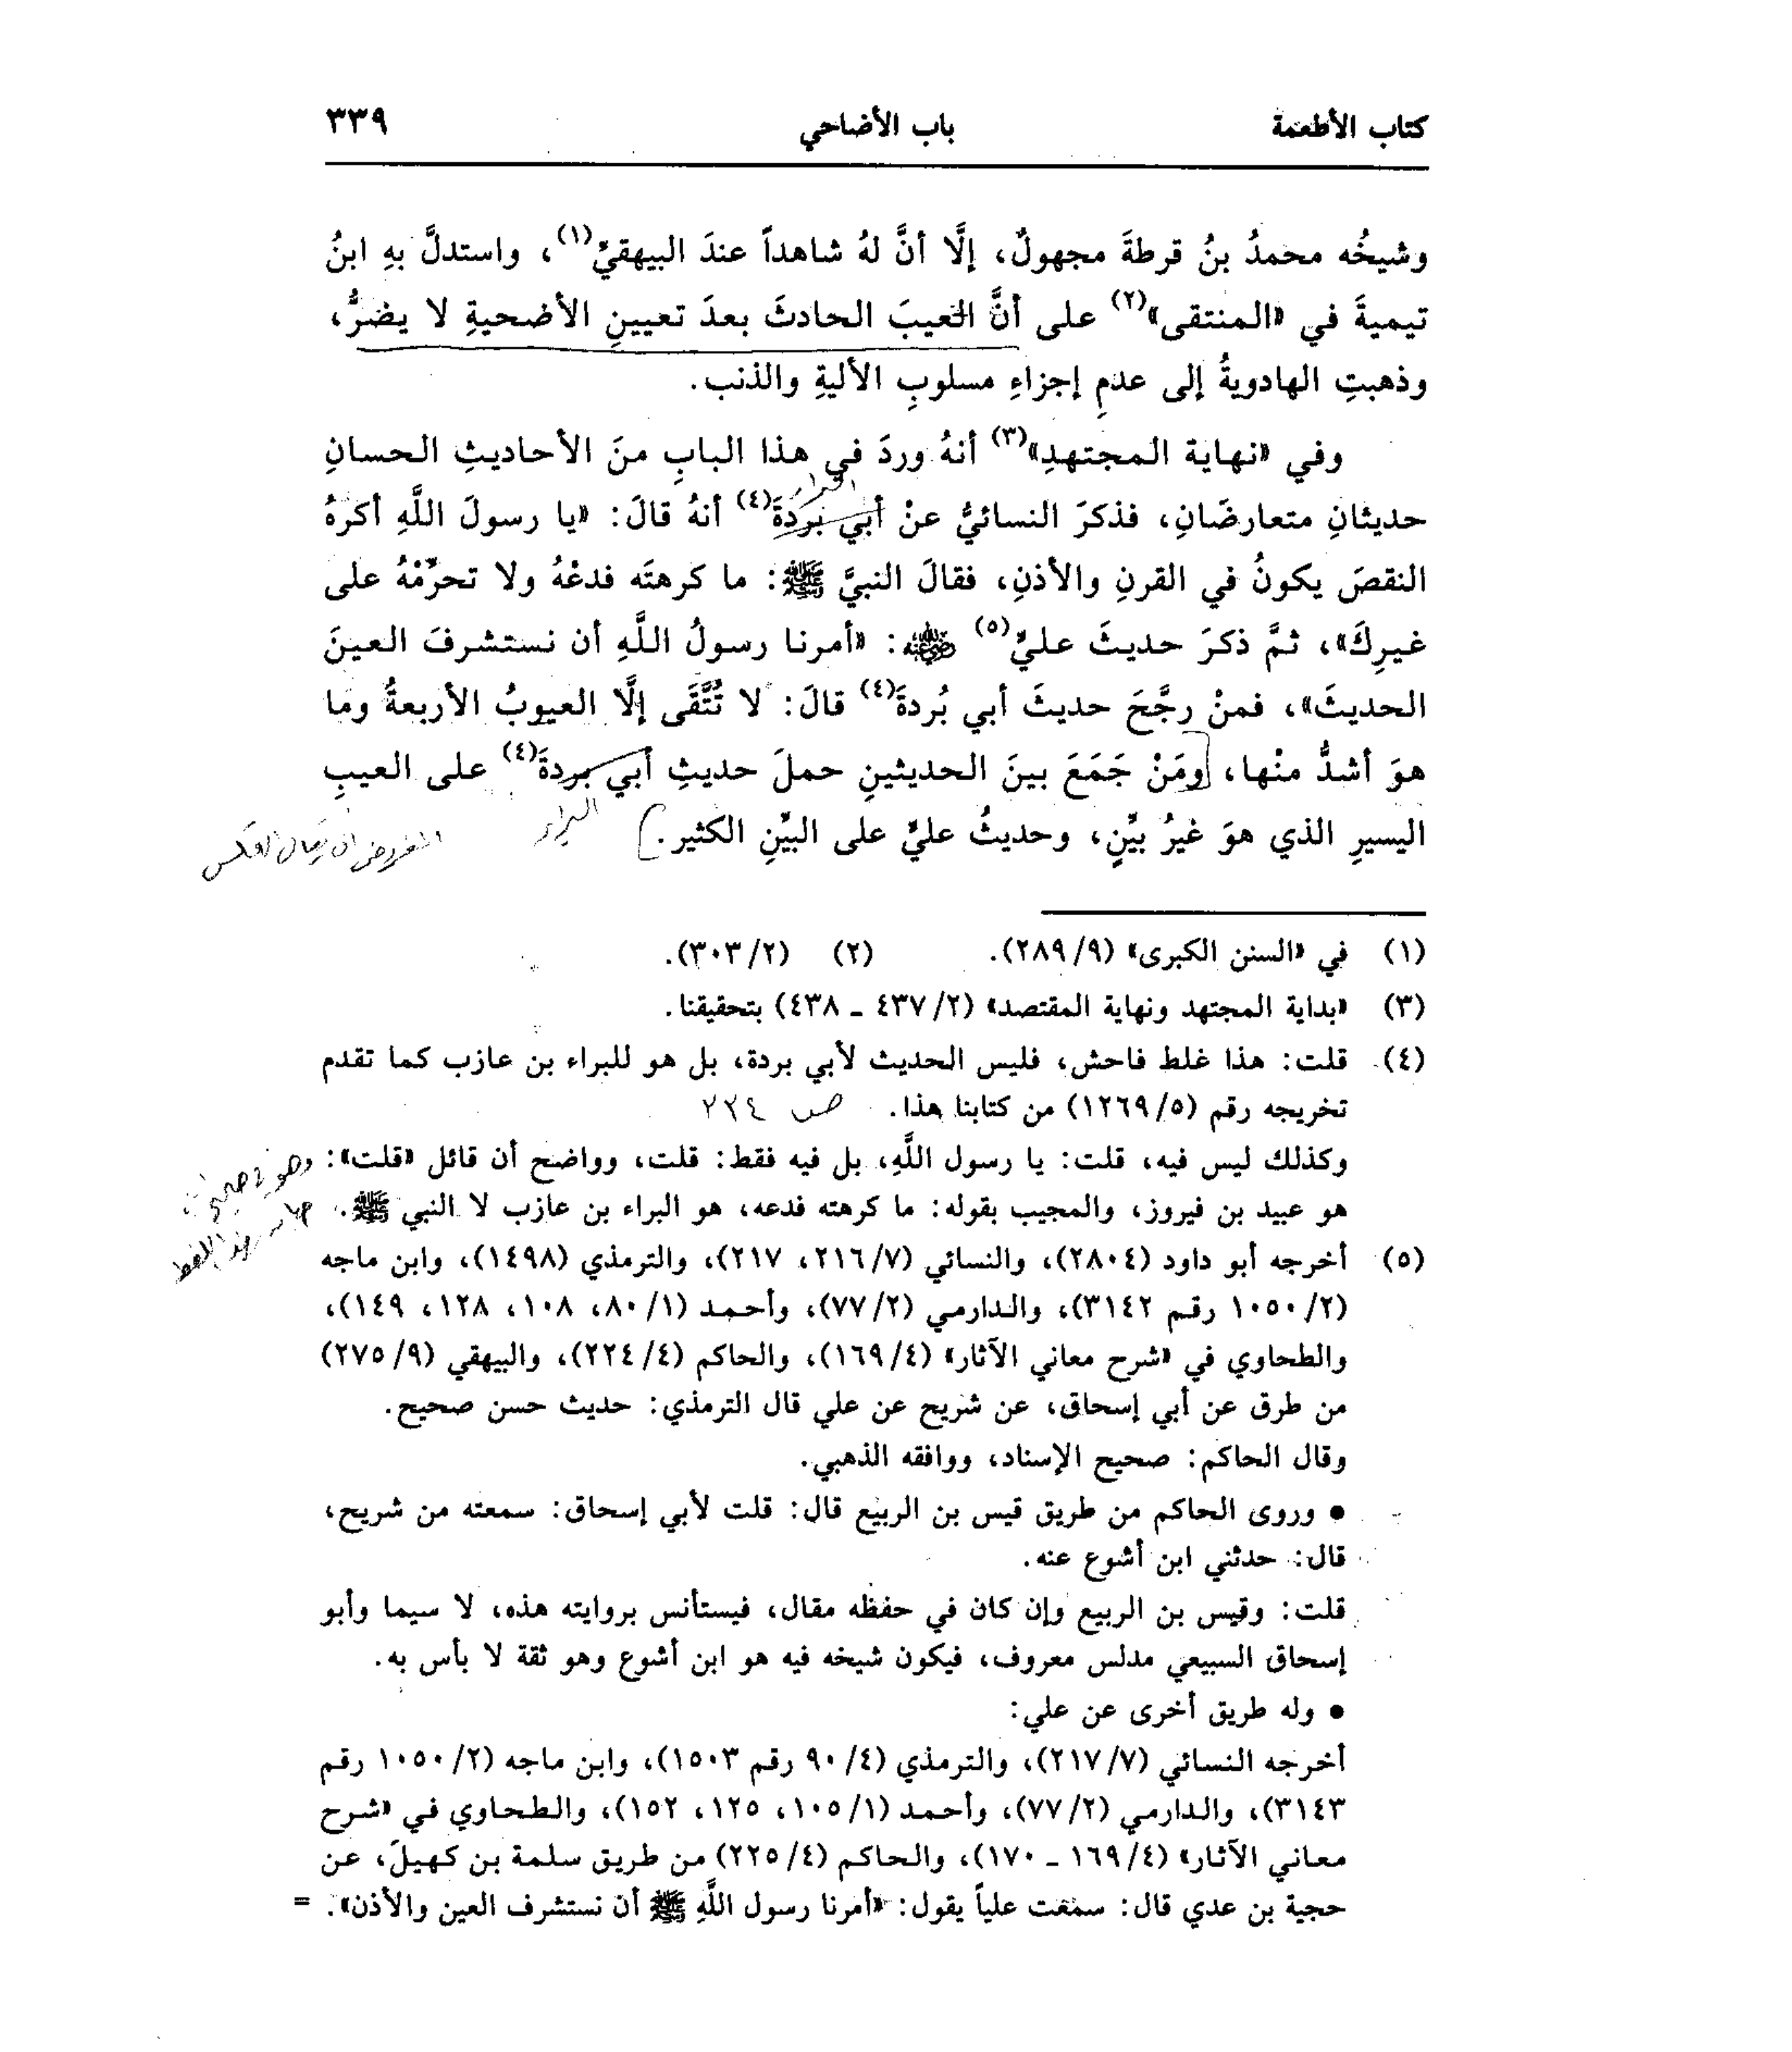 كتاب الأطعمة باب الأضاحي ٣٣٩
وشيخُه محمدُ بنُ قرطةَ مجهولٌ، إلَّا أنَّ لهُ شاهداً عندَ البيهقيِّ(١)، واستدلَّ بهِ ابنُ
تيميةَ في «المنتقى»(٢) على أنَّ العيبَ الحادثَ بعدَ تعيينِ الأضحيةِ لا يضرُّ،
وذهبتِ الهادويةُ إلى عدمِ إجزاءِ مسلوبِ الأليةِ والذنب.
وفي «نهاية المجتهدِ»(٣) أنهُ وردَ في هذا البابِ منَ الأحاديثِ الحسانِ
البراء
حديثانِ متعارضَانِ، فذكرَ النسائيُّ عنْ أبي بَردةَ(٤) أنهُ قالَ: «يا رسولَ اللَّهِ أكرَهُ
النقصَ يكونُ في القرنِ والأذنِ، فقالَ النبيَّ ﷺ: ما كرهتَه فدعْهُ ولا تحرِّمْهُ على
غيرِكَ»، ثمَّ ذكرَ حديثَ عليٍّ(٥) رضي الله عنه: «أمرنا رسولُ اللَّهِ أن نستشرفَ العينَ
الحديثَ»، فمنْ رجَّحَ حديثَ أبي بُردةَ(٤) قالَ: لا تُتَّقَى إلَّا العيوبُ الأربعةُ ومَا
هوَ أشدُّ منْها، [ومَنْ جَمَعَ بينَ الحديثينِ حملَ حديثِ أبي بردةَ(٤) على العيبِ
اليسيرِ الذي هوَ غيرُ بيِّنٍ، وحديثُ عليٍّ على البيِّنِ الكثير.] البراء المفروض ان يقال العكس
(١) في «السنن الكبرى» (٢٨٩/٩). (٢) (٣٠٣/٢).
(٣) «بداية المجتهد ونهاية المقتصد» (٤٣٧/٢ ـ ٤٣٨) بتحقيقنا.
(٤) قلت: هذا غلط فاحش، فليس الحديث لأبي بردة، بل هو للبراء بن عازب كما تقدم
تخريجه رقم (١٢٦٩/٥) من كتابنا هذا. ص ٢٢٤
وكذلك ليس فيه، قلت: يا رسول اللَّهِ، بل فيه فقط: قلت، وواضح أن قائل «قلت»:
هو عبيد بن فيروز، والمجيب بقوله: ما كرهته فدعه، هو البراء بن عازب لا النبي ﷺ.
بهذا اللفظ
(٥) أخرجه أبو داود (٢٨٠٤)، والنسائي (٢١٦/٧، ٢١٧)، والترمذي (١٤٩٨)، وابن ماجه
(١٠٥٠/٢ رقم ٣١٤٢)، والدارمي (٧٧/٢)، وأحمد (٨٠/١، ١٠٨، ١٢٨، ١٤٩)،
والطحاوي في «شرح معاني الآثار» (١٦٩/٤)، والحاكم (٢٢٤/٤)، والبيهقي (٢٧٥/٩)
من طرق عن أبي إسحاق، عن شريح عن علي قال الترمذي: حديث حسن صحيح.
وقال الحاكم: صحيح الإسناد، ووافقه الذهبي.
● وروى الحاكم من طريق قيس بن الربيع قال: قلت لأبي إسحاق: سمعته من شريح،
قال: حدثني ابن أشوع عنه.
قلت: وقيس بن الربيع وإن كان في حفظه مقال، فيستأنس بروايته هذه، لا سيما وأبو
إسحاق السبيعي مدلس معروف، فيكون شيخه فيه هو ابن أشوع وهو ثقة لا بأس به.
● وله طريق أخرى عن علي:
أخرجه النسائي (٢١٧/٧)، والترمذي (٩٠/٤ رقم ١٥٠٣)، وابن ماجه (١٠٥٠/٢ رقم
٣١٤٣)، والدارمي (٧٧/٢)، وأحمد (١٠٥/١، ١٢٥، ١٥٢)، والطحاوي في «شرح
معاني الآثار» (١٦٩/٤ ـ ١٧٠)، والحاكم (٢٢٥/٤) من طريق سلمة بن كهيلَ، عن
حجية بن عدي قال: سمعت علياً يقول: «أمرنا رسول اللَّهِ ﷺ أن نستشرف العين والأذن». =